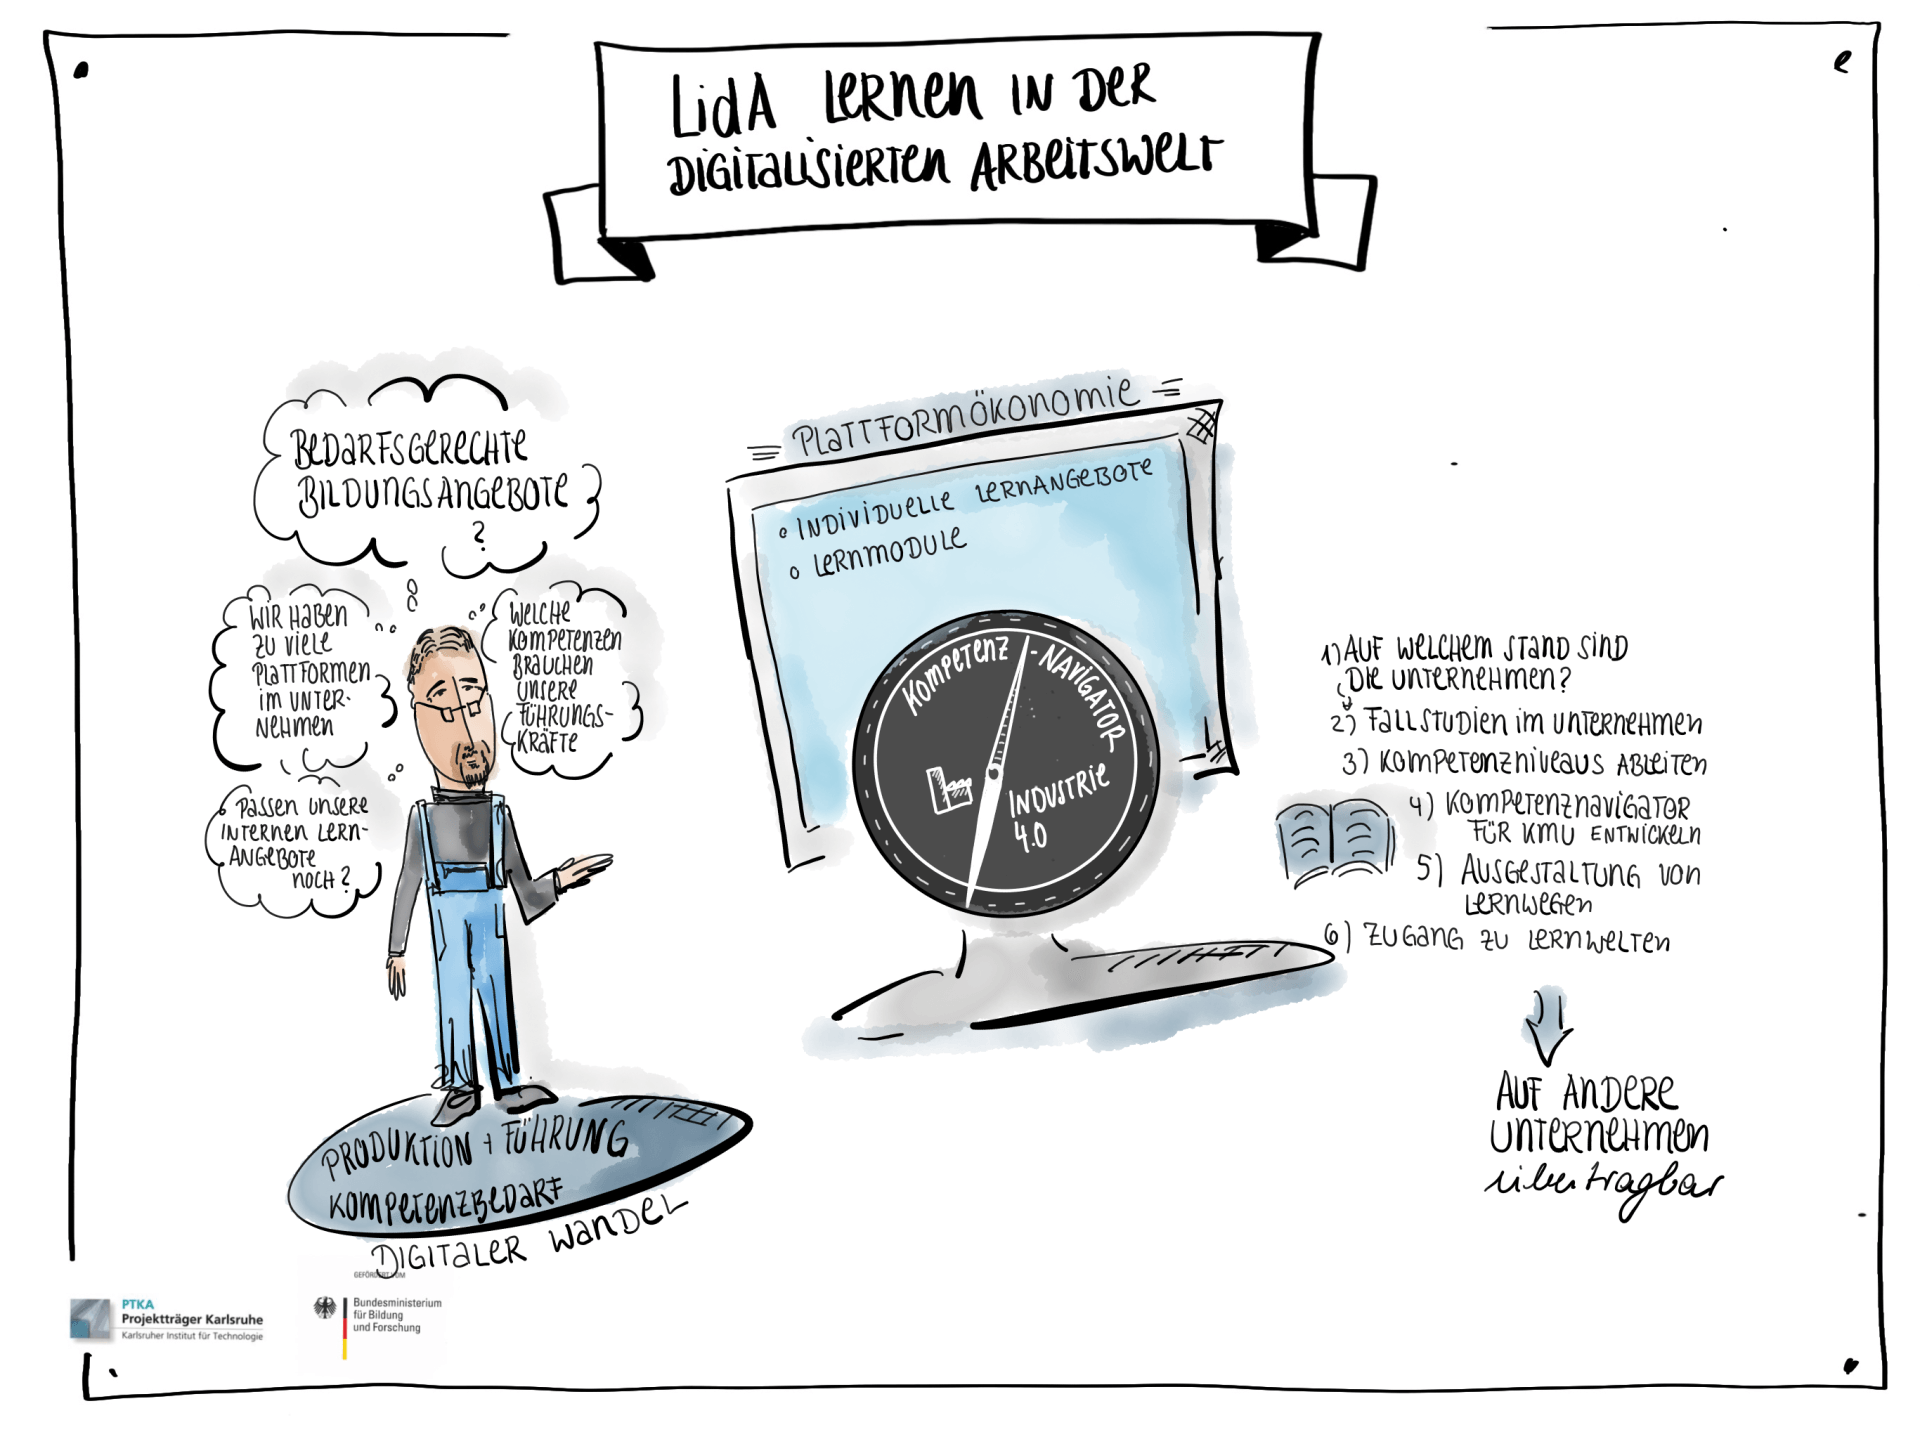 LidA Lernen in der
digitalisierten Arbeitswelt
Bedarfsgerechte
Bildungsangebote
?
Wir haben
zu viele
Plattformen
im Unter-
nehmen
Welche
Kompetenzen
brauchen
unsere
Führungs-
kräfte
Passen unsere
internen Lern-
angebote
noch?
Produktion + Führung
Kompetenzbedarf
Digitaler Wandel
Plattformökonomie
Individuelle Lernangebote
Lernmodule
Kompetenz-Navigator
Industrie
4.0
1) Auf welchem Stand sind
die Unternehmen?
2) Fallstudien im Unternehmen
3) Kompetenzniveaus ableiten
4) Kompetenznavigator
für KMU entwickeln
5) Ausgestaltung von
Lernwegen
6) Zugang zu Lernwelten
Auf andere
Unternehmen
übertragbar
PTKA
Projektträger Karlsruhe
Karlsruher Institut für Technologie
GEFÖRDERT VOM
Bundesministerium
für Bildung
und Forschung